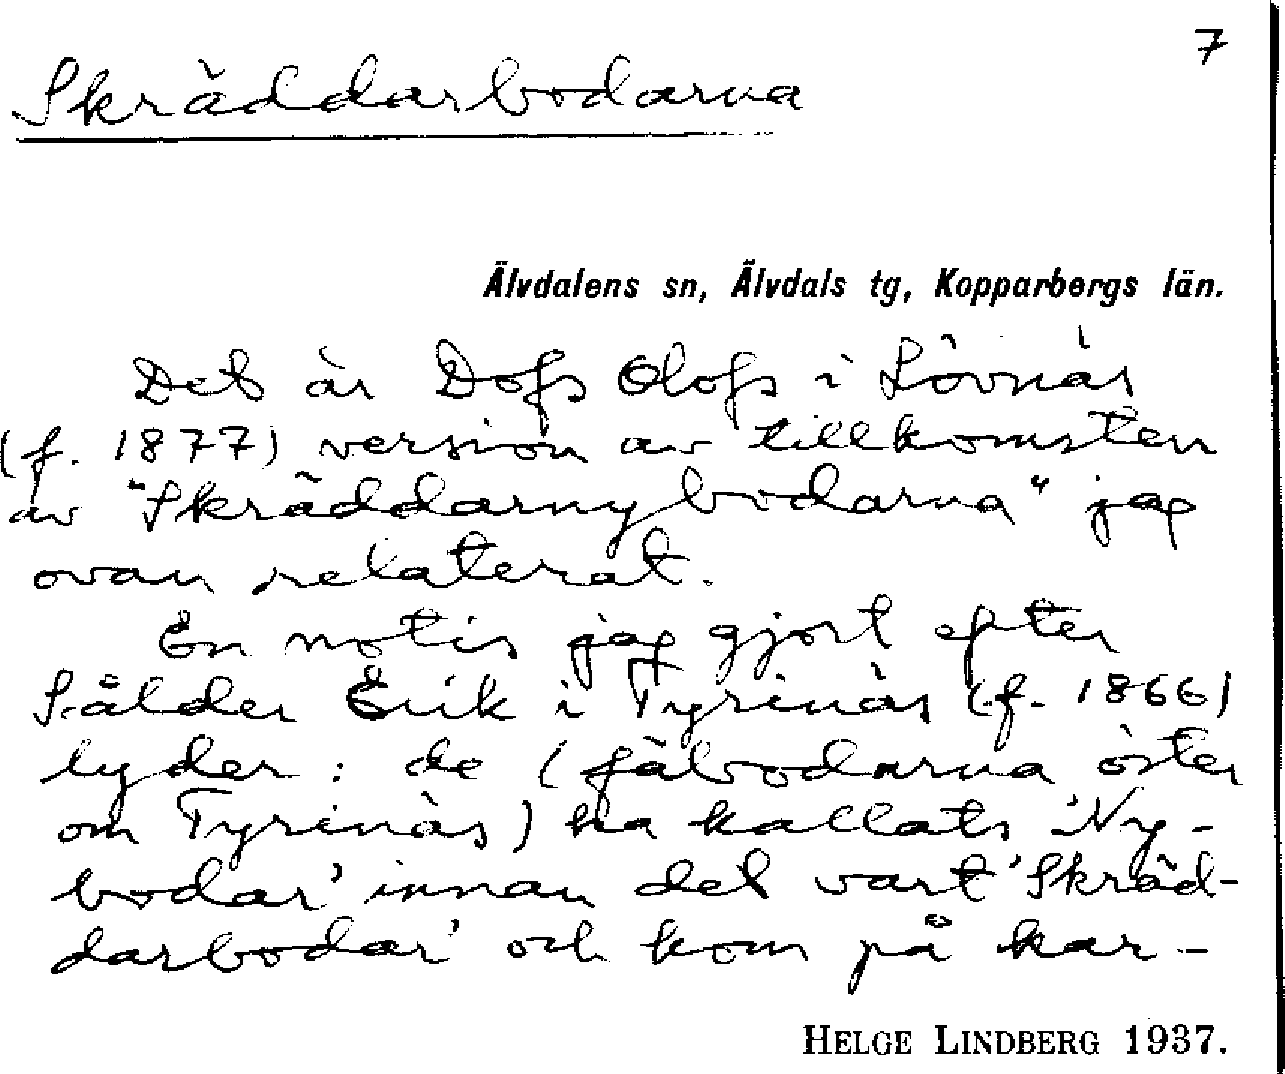 7
Skräddarbodarna
Älvdalens sn, Älvdals tg, Kopparbergs län.
Det är Dofs Olofs i Lövnäs
(f. 1877) version av tillkomsten
av "Skräddarnybodarna" jag
ovan relaterat.
En notis jag gjort efter
Sålder Erik i Tyrinäs (f. 1866)
lyder: de (fäbodarna öster
om Tyrinäs) ha kallats 'Ny-
bodar' innan det vart 'Skräd-
darbodar' och kom på kar-
HELGE LINDBERG 1937.